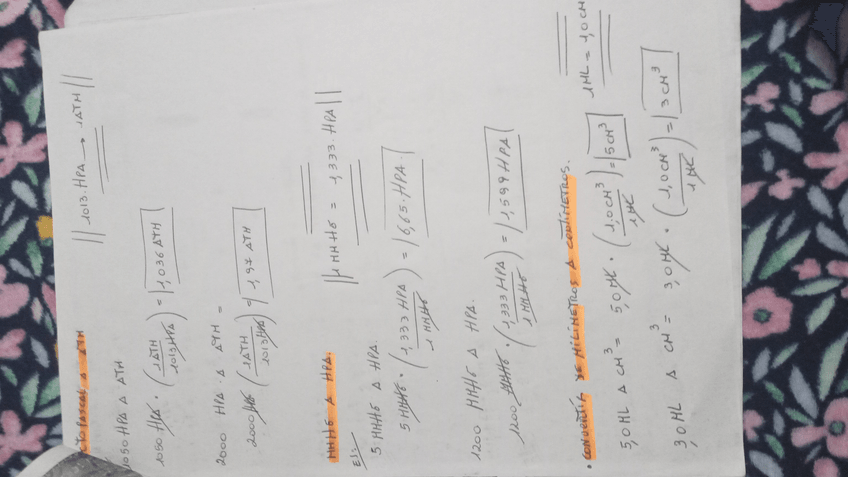 CTOPASCAL A ATM ||1013.HPA → 1ATM||
1050 HPA A ATM
1050 HPA • (1ATM / 1013HPA) = |1,036 ATM|
2000 HPA . A ATM =
2000 HPA (1ATM / 1013HPA) = |1,97 ATM|
MMHG A HPA. ||1MMHG = 1,333.HPA||
EJ:
5 MMHG A HPA.
5 MMHG • (1,333 HPA / 1 MMHG) = |6,65.HPA.|
1200 MMHG A HPA.
1200 MMHG • (1,333 HPA / 1 MMHG) = |1,599 HPA|
• CONVERTIR DE MILIMETROS A CENTIMETROS.
1ML = 1,0CM
5,0ML A CM³ = 5,0ML • (1,0CM³ / 1ML) = |5CM³|
3,0ML A CM³ = 3,0ML • (1,0CM³ / 1ML) = |3CM³|